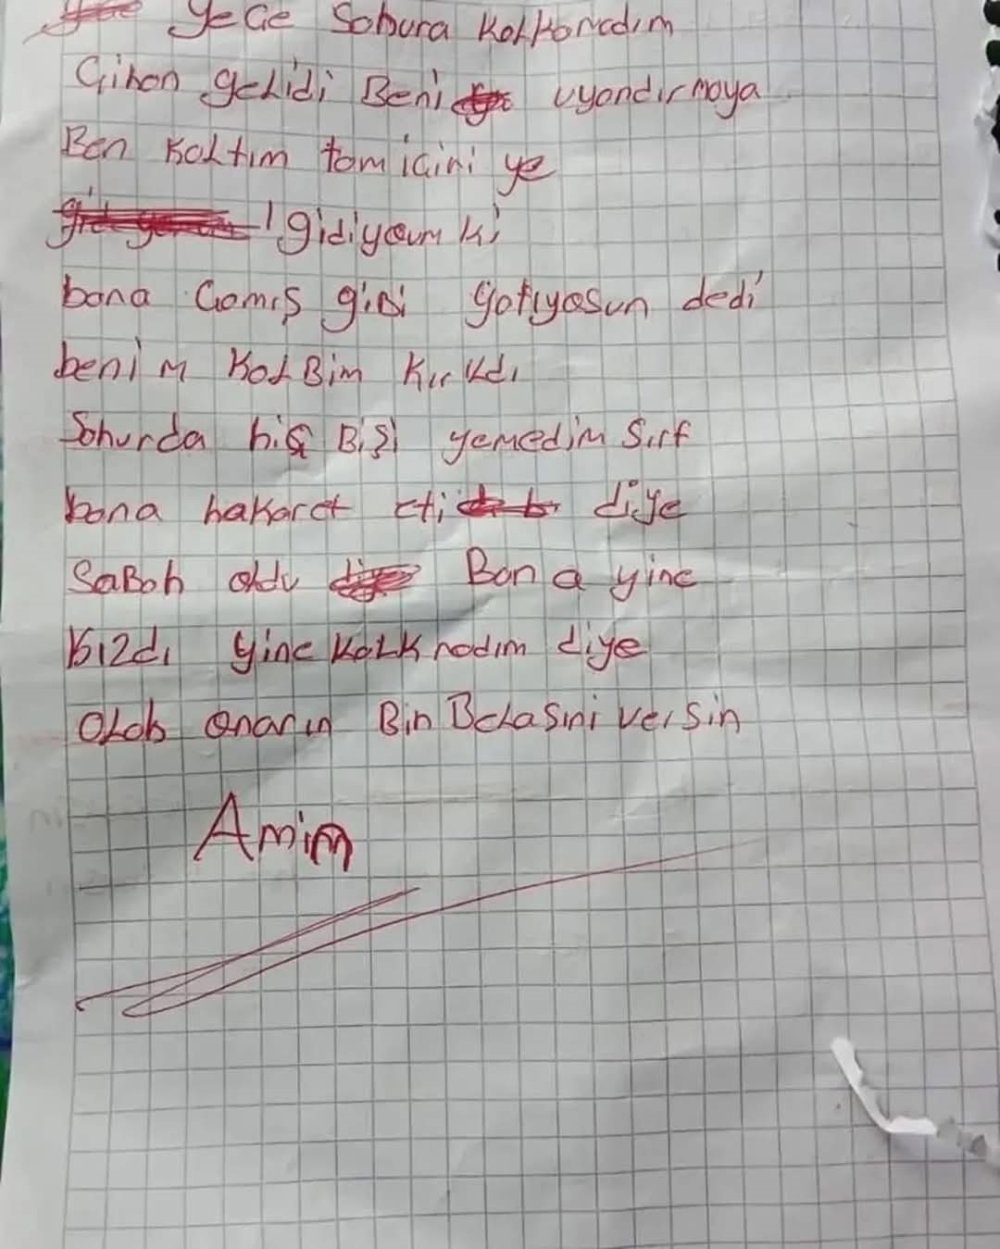 gece Sahura KalKamadım
Cihan gelidi Beni uyandırmaya
Ben Kaltım tam içini ye
gidiyoum ki
bana Camış gibi yatıyosun dedi
benim Kalbim Kırıldı
Sahurda hiç Bişi yemedim Sırf
bana hakaret eti diye
SaBah oldu Bana yine
Kızdı yine Kalkmadım diye
Olah onarın Bin Belasini versin
Amim